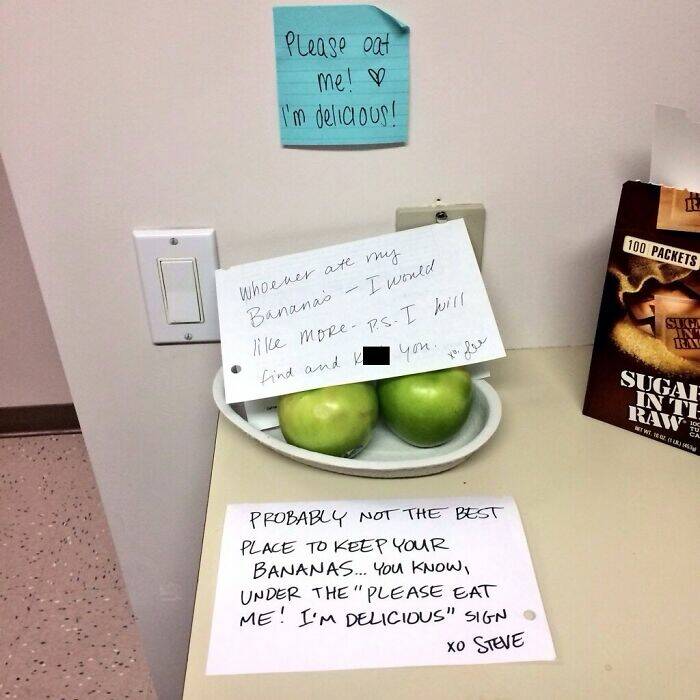 Please eat
me! ♡
I'm delicious!
Whoever ate my
Bananas – I would
like more - P.S. I will
find and k you.
xo.
100 PACKETS
SUGAR
IN THE
RAW
NET WT. 16 OZ. (1 LB.) (453g)
PROBABLY NOT THE BEST
PLACE TO KEEP YOUR
BANANAS... YOU KNOW,
UNDER THE "PLEASE EAT
ME! I'M DELICIOUS" SIGN
XO STEVE